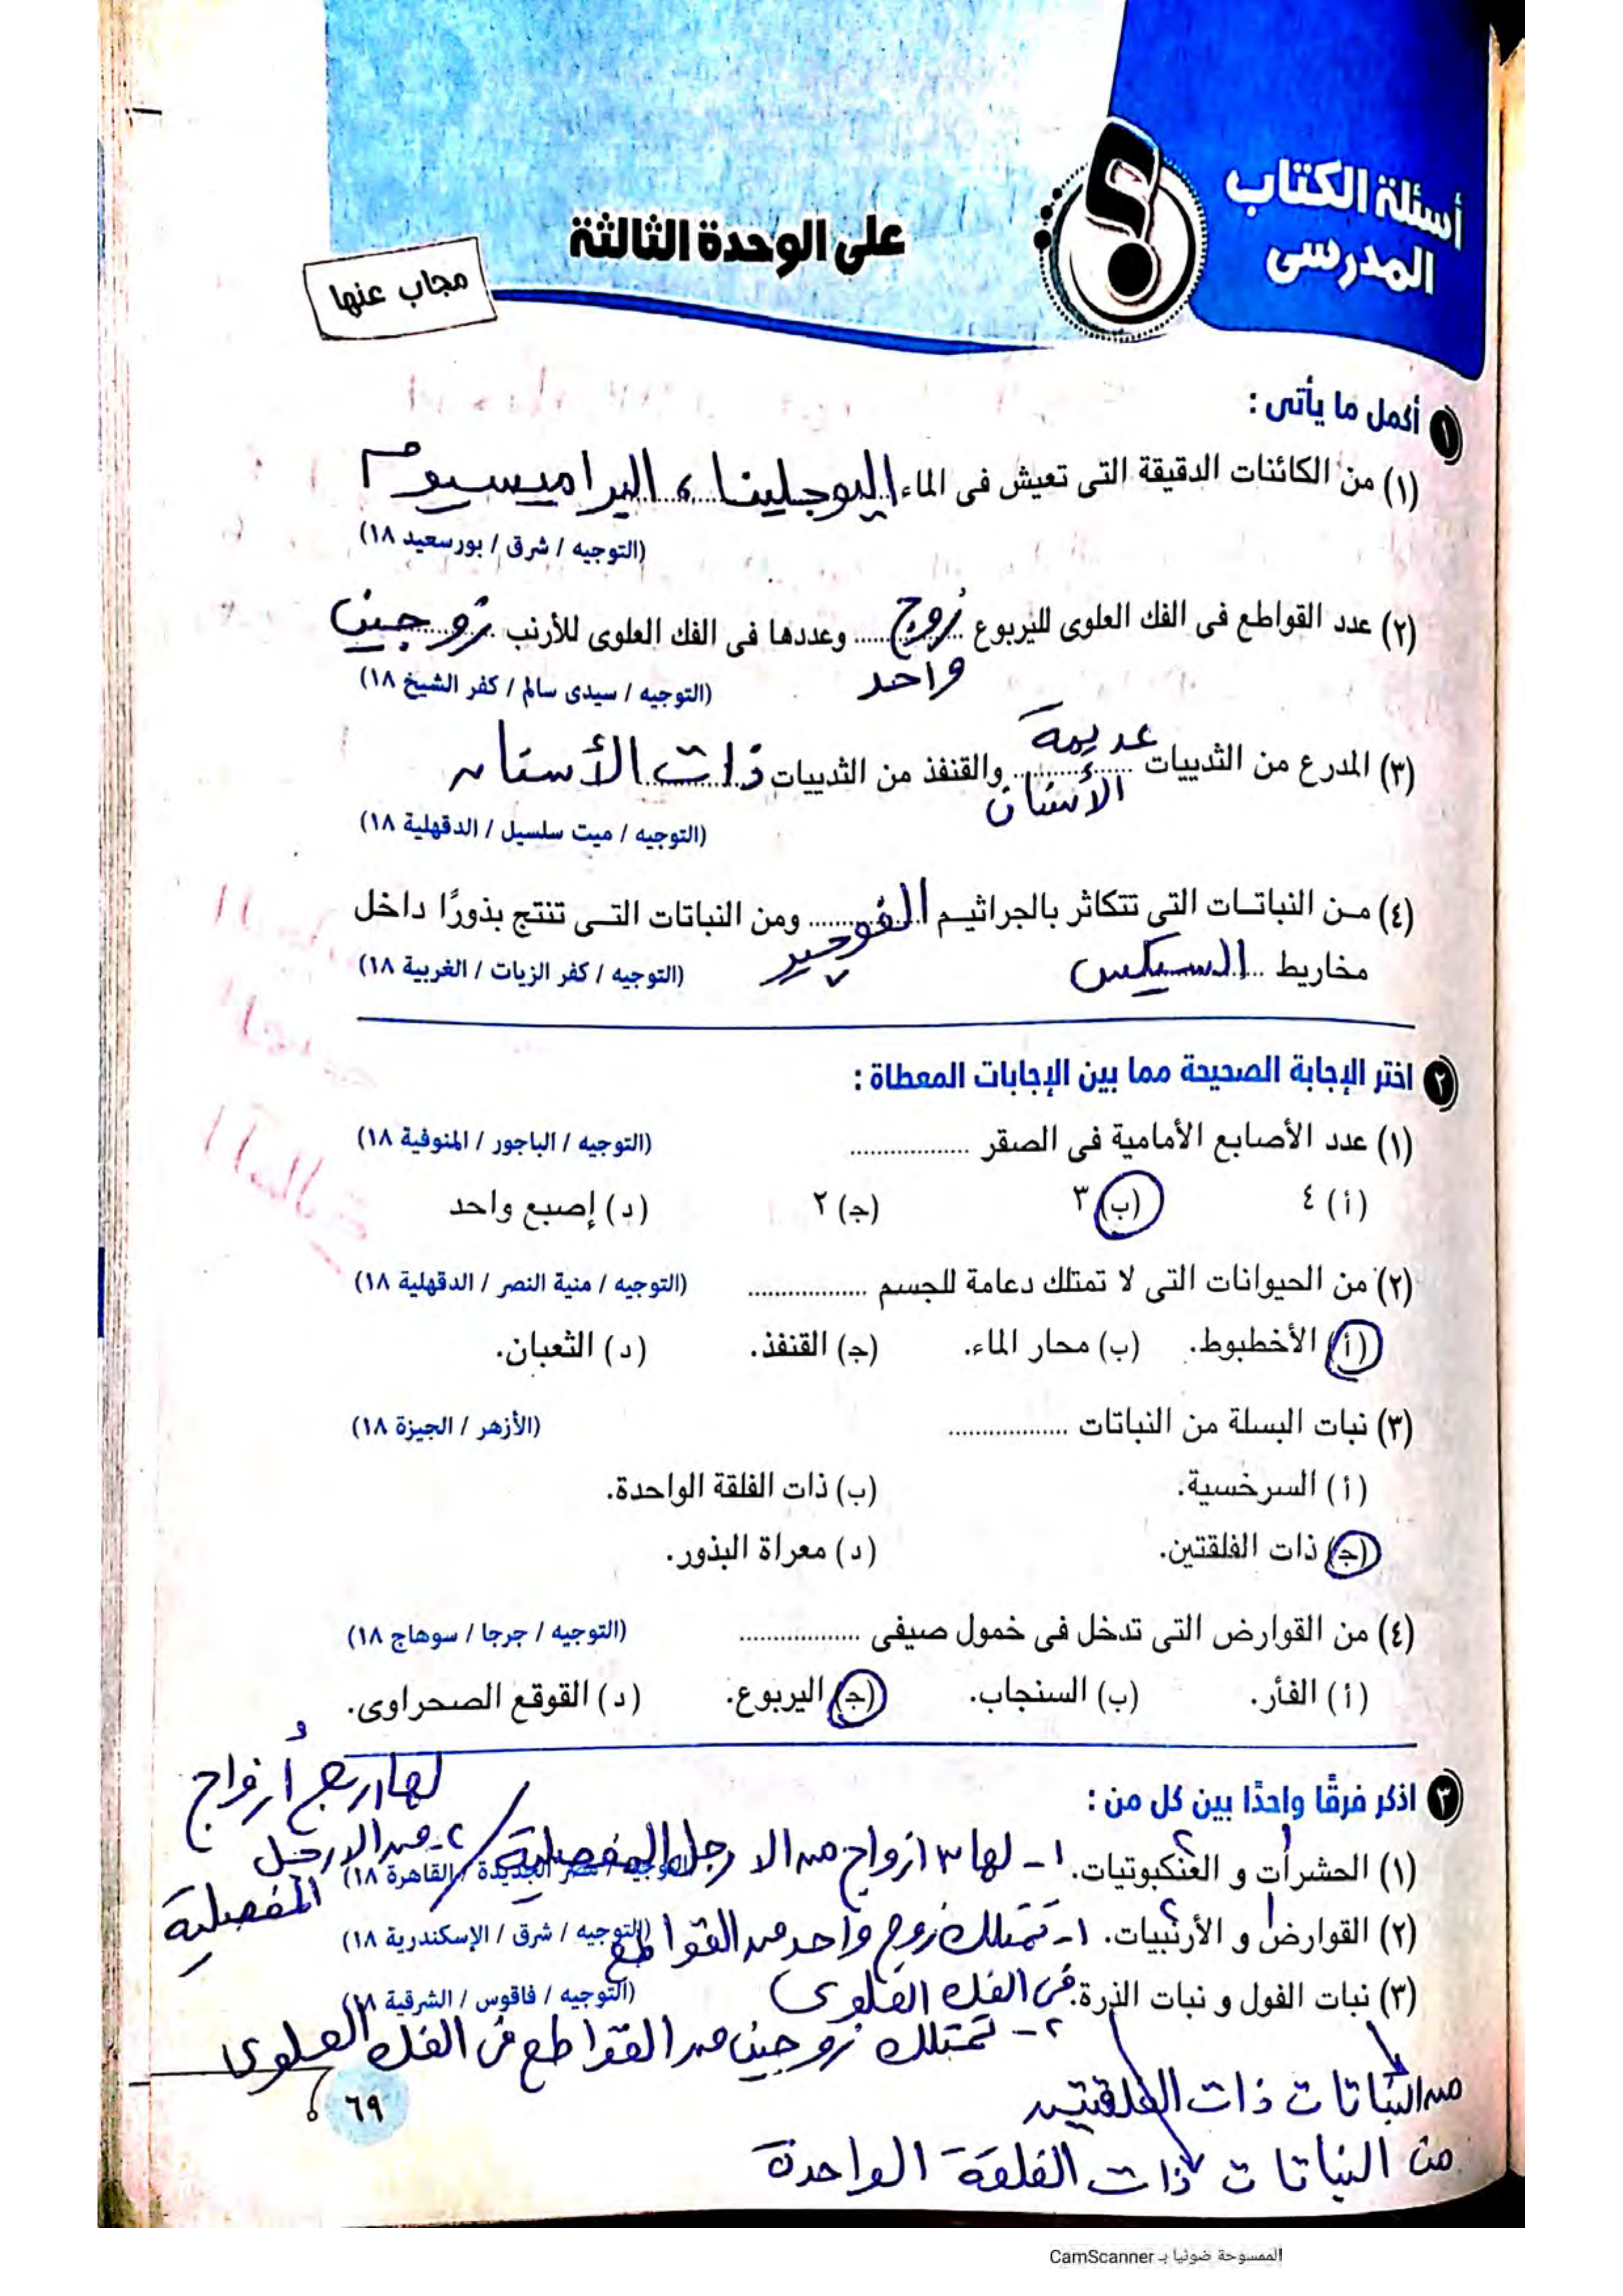 أسئلة الكتاب
المدرسى
على الوحدة الثالثة
مجاب عنها
١ أكمل ما يأتى :
(١) من الكائنات الدقيقة التى تعيش فى الماء اليوجلينا ، البراميسيوم
(التوجيه / شرق / بورسعيد ١٨)
(٢) عدد القواطع فى الفك العلوى لليربوع زوج واحد وعددها فى الفك العلوى للأرنب زوجين
(التوجيه / سيدى سالم / كفر الشيخ ١٨)
(٣) المدرع من الثدييات عديمة الأسنان والقنفذ من الثدييات ذات الأسنان
(التوجيه / ميت سلسيل / الدقهلية ١٨)
(٤) من النباتات التى تتكاثر بالجراثيم الفوجير ومن النباتات التى تنتج بذورًا داخل
مخاريط السيكس
(التوجيه / كفر الزيات / الغربية ١٨)
٢ اختر الإجابة الصحيحة مما بين الإجابات المعطاة :
(١) عدد الأصابع الأمامية فى الصقر .................. (التوجيه / الباجور / المنوفية ١٨)
(أ) ٤ (ب) ٣ (ج) ٢ (د) إصبع واحد
(٢) من الحيوانات التى لا تمتلك دعامة للجسم .................. (التوجيه / منية النصر / الدقهلية ١٨)
(أ) الأخطبوط. (ب) محار الماء. (ج) القنفذ. (د) الثعبان.
(٣) نبات البسلة من النباتات .................. (الأزهر / الجيزة ١٨)
(أ) السرخسية. (ب) ذات الفلقة الواحدة.
(ج) ذات الفلقتين. (د) معراة البذور.
(٤) من القوارض التى تدخل فى خمول صيفى .................. (التوجيه / جرجا / سوهاج ١٨)
(أ) الفأر. (ب) السنجاب. (ج) اليربوع. (د) القوقع الصحراوى.
٣ اذكر فرقًا واحدًا بين كل من :
(١) الحشرات و العنكبوتيات. ١- لها ٣ ازواج من الارجل المفصلية / ٢- لها اربع أزواج من الارجل المفصلية
(التوجيه / مصر الجديدة / القاهرة ١٨)
(٢) القوارض و الأرنبيات. ١- تمتلك زوج واحد من القواطع
(التوجيه / شرق / الإسكندرية ١٨)
فى الفك العلوى
(٣) نبات الفول و نبات الذرة. (التوجيه / فاقوس / الشرقية ١٨)
٢- تمتلك زوجين من القواطع فى الفك العلوى
من النباتات ذات الفلقتين
من النباتات ذات الفلقة الواحدة
٦٩
الممسوحة ضوئيا بـ CamScanner